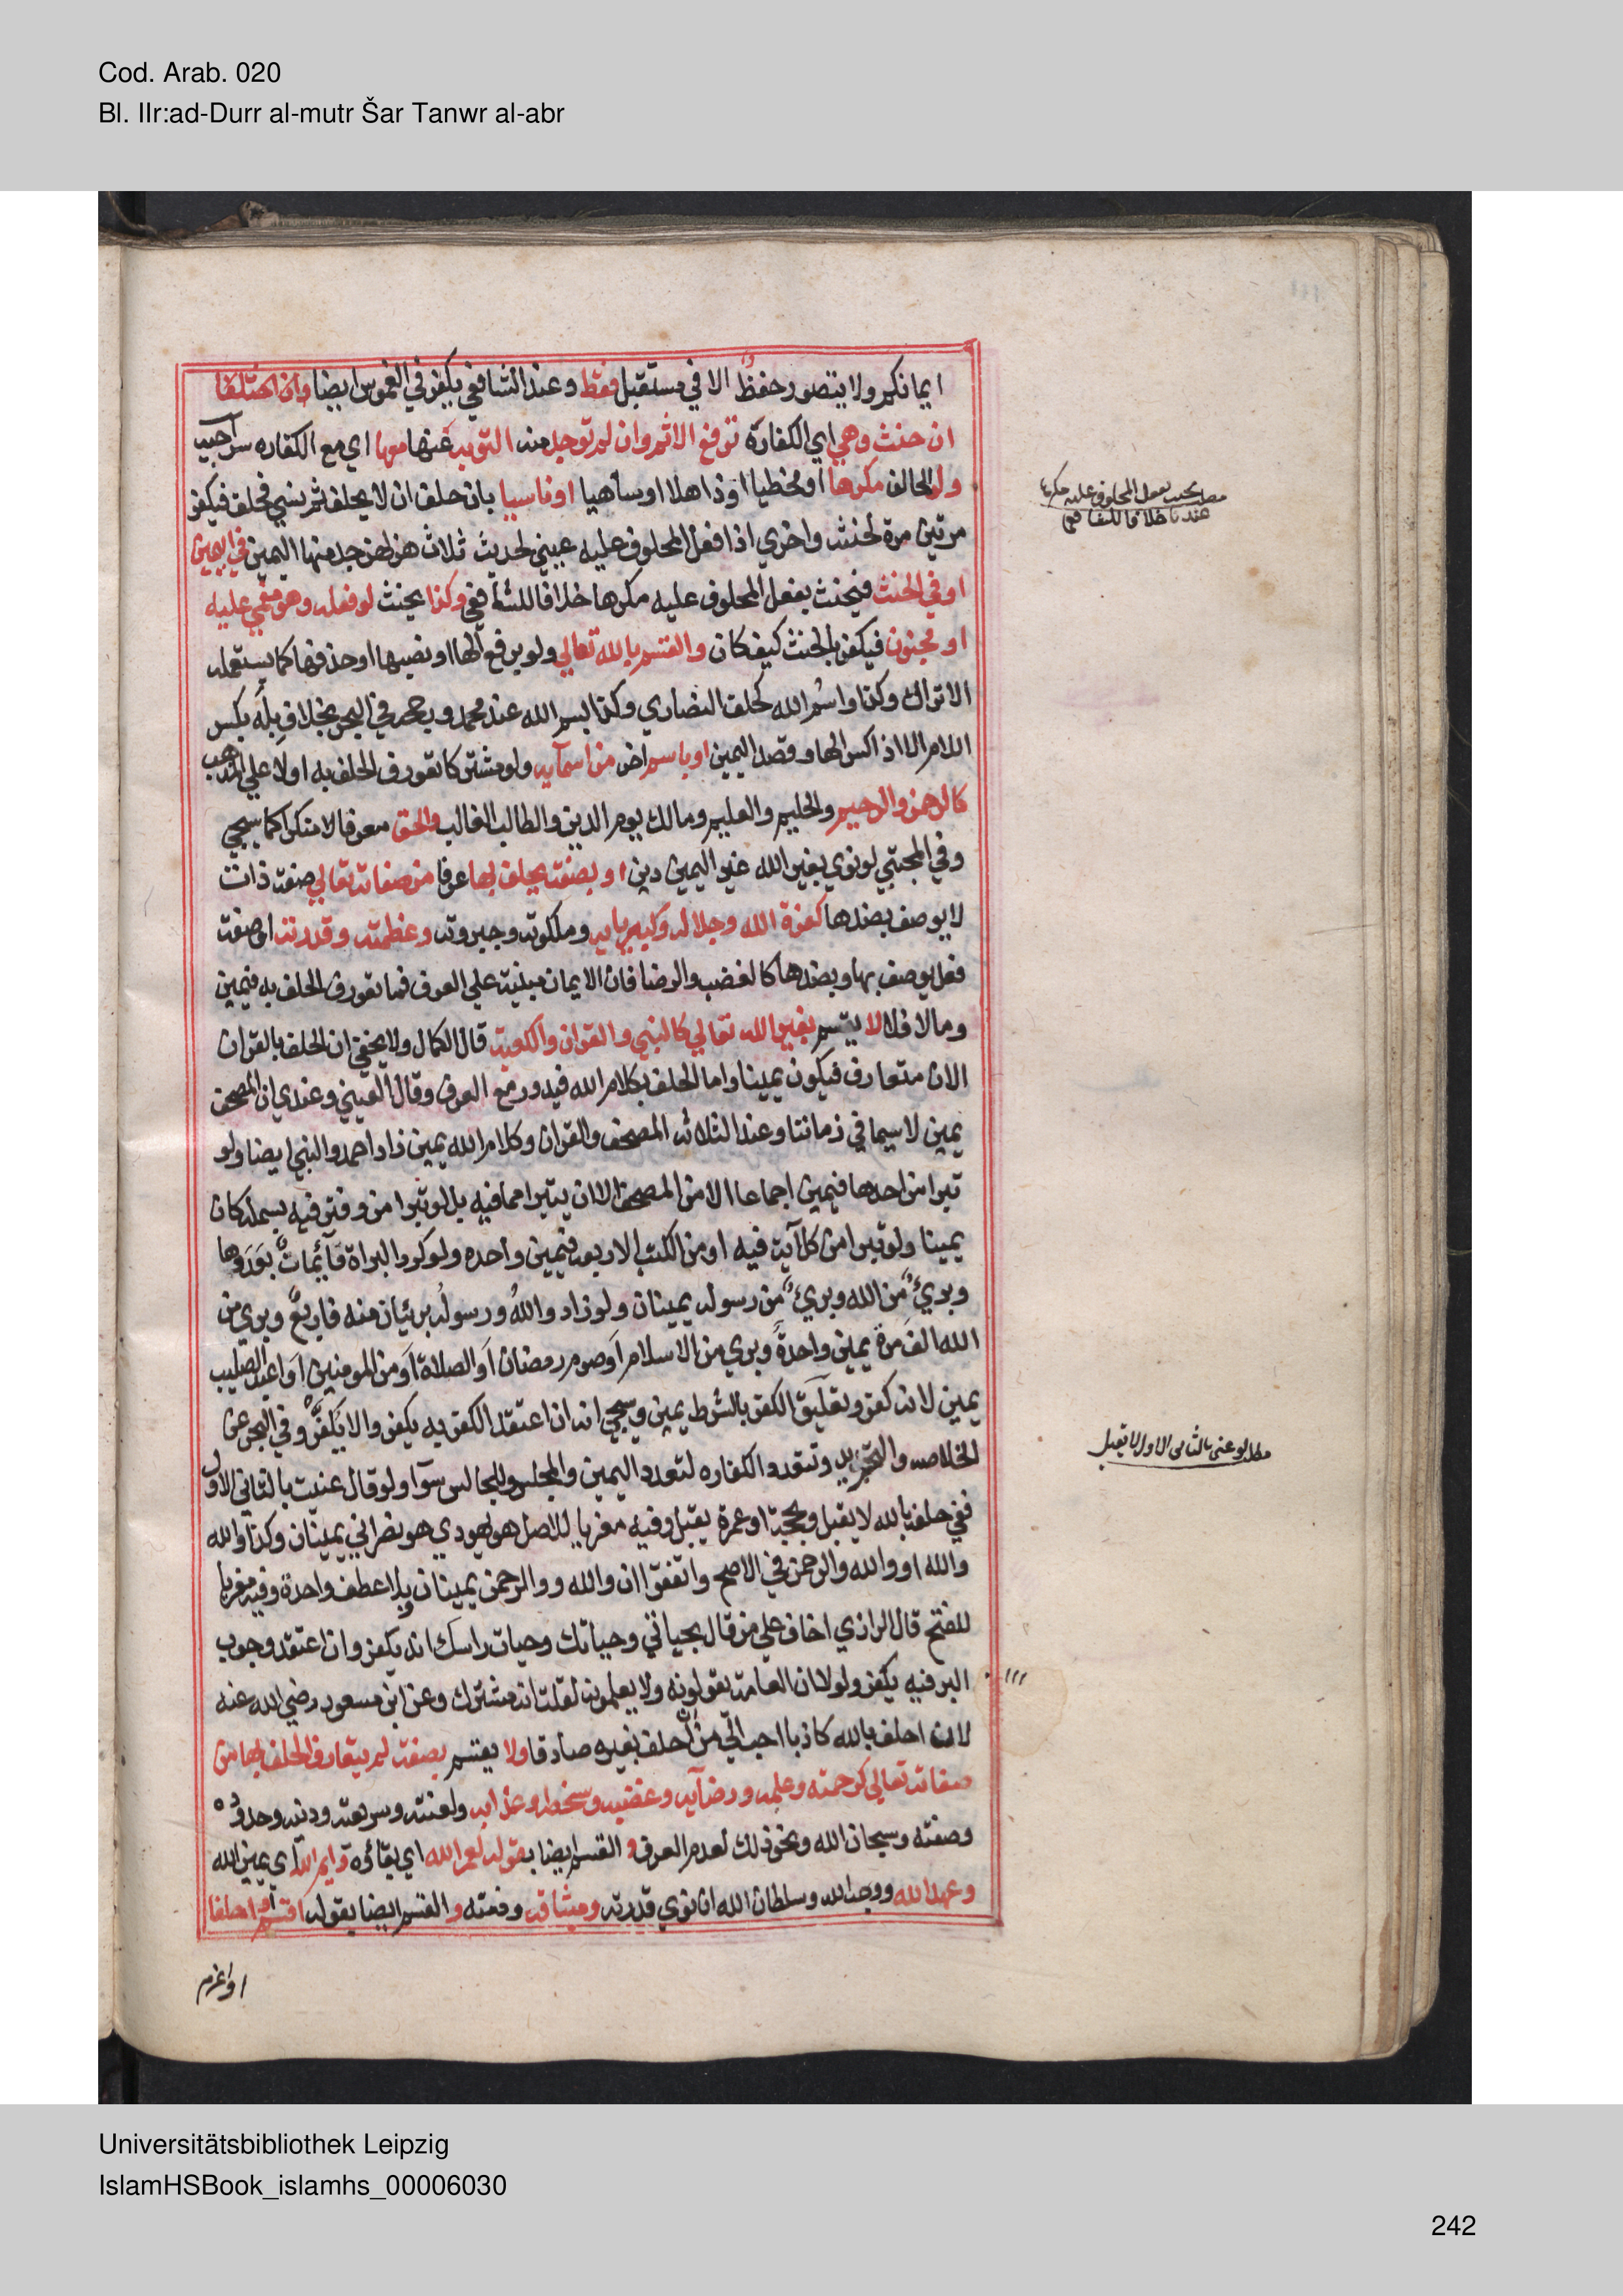 Cod. Arab. 020
Bl. IIr:ad-Durr al-mutr Šar Tanwr al-abr
ايمانكم ولا يتصور حفظ الا في مستقبل فقط وعند الشافعي يكفر في الغموس ايضا وان اختلفا
ان حنث وهي اي الكفارة ترفع الاثم وان لم توجد منه التوبة عنها معها اي مع الكفاره سراجيه
ولو الحالف مكرها او مخطيا او ذاهلا او ساهيا او ناسيا بان حلف ان لا يحلف ثم نسي فحلف فيكفر
مطلب يحنث بفعل المحلوف عليه مكرها
عندنا خلافا للشافعي
مرتين مرة لحنثه واخري اذا فعل المحلوف عليه عيني لحديث ثلاث هزلهن جد منها اليمين في اليمين
او في الحنث فيحنث بفعل المحلوف عليه مكرها خلافا للشافعي وكذا يحنث لو فعله وهو مغمي عليه
او مجنون فيكفر بالحنث كيف كان والقسم بالله تعالي ولو برفع الها او نصبها او حذفها كما يستعمله
الاتراك وكذا واسم الله كحلف النصاري وكذا بسم الله عند محمد ورجحه في البحر بخلاف بله بكسر
اللام الا اذا كسر الها وقصد اليمين او باسم اخر من اسمآيه ولو مشتركا تعورف الحلف به او لا علي المذهب
كالرحمن والرحيم والحليم والعليم ومالك يوم الدين والطالب الغالب والحق معرفا لا منكرا كما سيجي
وفي المجتبي لو نوي بغير الله غير اليمين دين او بصفة يحلف بها عرفا من صفاته تعالي صفة ذات
لا يوصف بضدها كعزة الله وجلاله وكبريايه وملكوته وجبروته وعظمته وقدرته او صفة
فعل يوصف بها وبضدها كالغضب والرضا فان الايمان مبنية علي العرف فما تعورف الحلف به فيمين
وما لا فلا لا يقسم بغير الله تعالي كالنبي والقران والكعبة قال الكمال ولا يخفي ان الحلف بالقران
الان متعارف فيكون يمينا واما الحلف بكلام الله فيدور مع العرف وقال العيني وعندي ان المصحف
يمين لا سيما في زماننا وعند الثلاثه المصحف والقران وكلام الله يمين زاد احمد والنبي ايضا ولو
تبرا من احدها فيمين اجماعا الا من المصحف الا ان يتبرا مما فيه بل لو تبرا من دفتر فيه بسملة كان
يمينا ولو تبرا من كل آية فيه او من الكتب الاربعه فيمين واحده ولو كرر البراة فآيمات بعددها
وبريء من الله وبريء من رسوله يمينان ولو زاد والله ورسوله بريئان منه فاربع وبري من
الله الف مرة يمين واحدة وبري من الاسلام او صوم رمضان او الصلاة او من المومنين او اعبد الصليب
يمين لانه كفر وتعليق الكفر بالشرط يمين وسيجي انه ان اعتقد الكفر به يكفر والا يكفر وفي البحر عن
الخلاصه والتجريد وتتعدد الكفاره لتعدد اليمين والمجلس والمجالس سوآ ولو قال عنيت بالثاني الاول
مطلب لو عني بالثاني الاول لا يقبل
ففي حلفه بالله لا يقبل وبحجة او عمرة يقبل وفيه معزيا للاصل هو يهودي هو نصراني يمينان وكذا والله
والله او والله والرحمن في الاصح واتفقوا ان والله ووالرحمن يمينان وبلا عطف واحدة وفيه معزيا
للفتح قال الرازي اخاف علي من قال بحياتي وحياتك وحيات راسك انه يكفر وان اعتقد وجوب
البر فيه يكفر ولولا ان العامة يقولونه ولا يعلمونه لقلت انه مشرك وعن ابن مسعود رضي الله عنه
لان احلف بالله كاذبا احب الي من ان احلف بغيره صادقا ولا يقسم بصفة لم يتعارف الحلف بها من
صفاته تعالي كرحمته وعلمه ورضآيه وغضبه وسخطه وعذابه ولعنته وشريعته ودينه وحدوده
وصفته وسبحان الله ونحو ذلك لعدم العرف و القسم ايضا بقوله لعمر الله اي بقاؤه وايم الله اي يمين الله
وعهد الله ووجه الله وسلطان الله ان نوي قدرته وميثاقه وذمته و القسم ايضا بقوله اقسم او احلف
او اعزم
Universitätsbibliothek Leipzig
IslamHSBook_islamhs_00006030
242